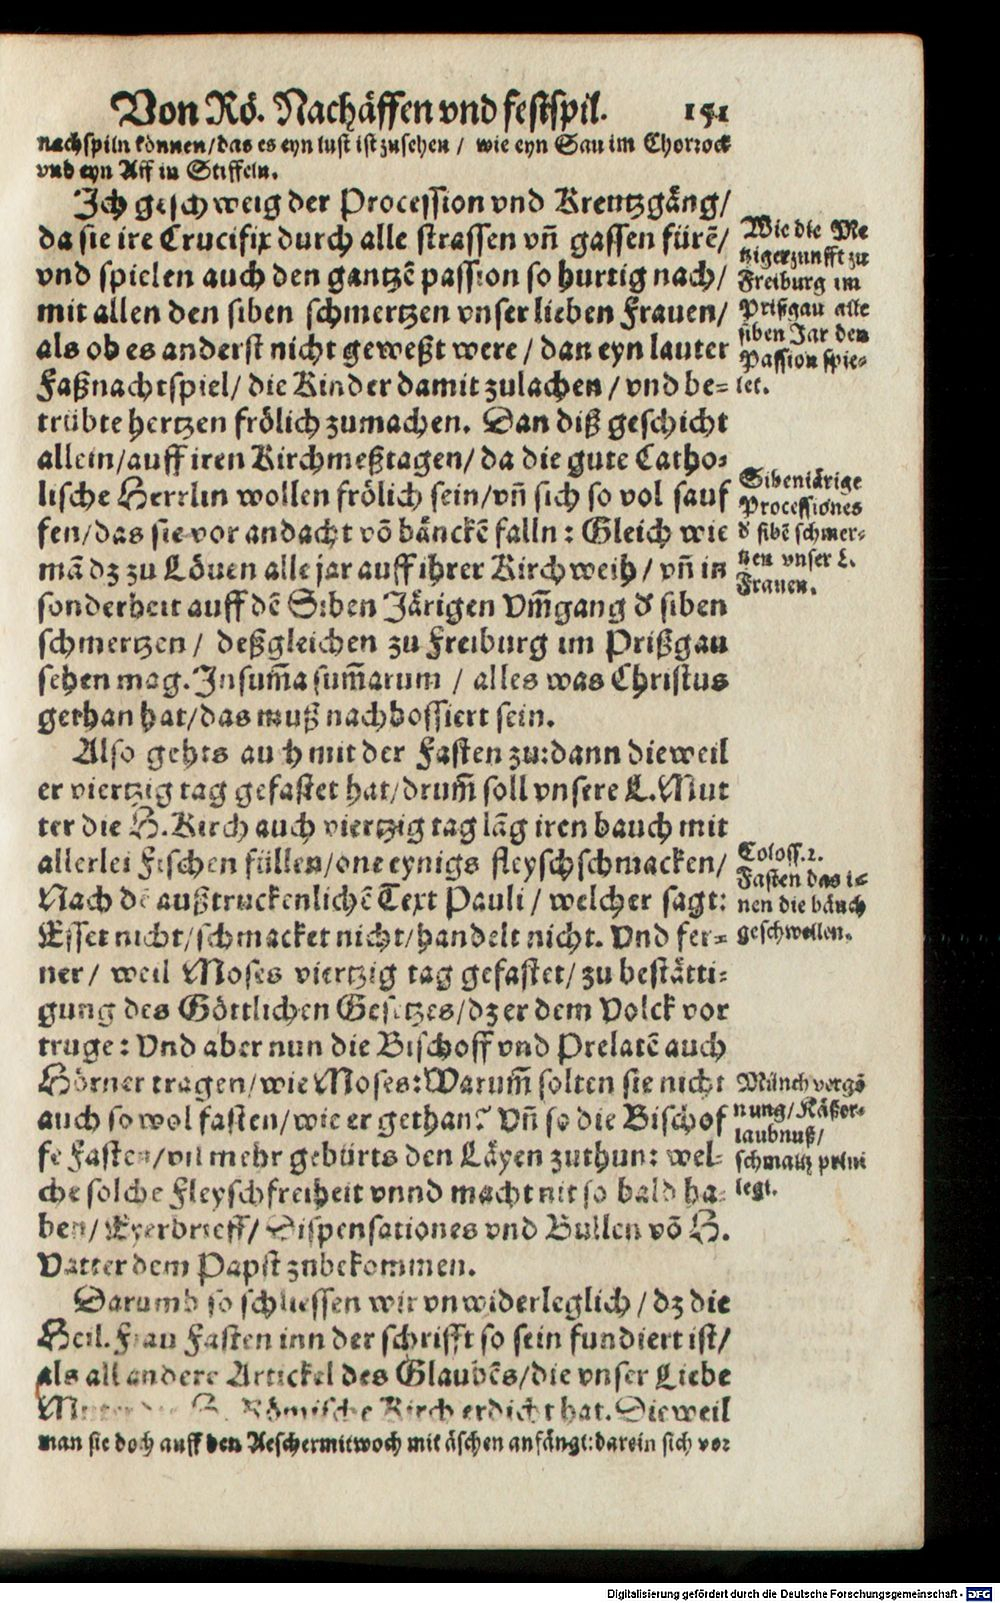 Von Rö. Nachäffen vnd festspil. 151
nachspiln können/das es eyn lust ist zusehen / wie eyn Sau im Chorrock
vnd eyn Aff in Stiffeln.
Ich geschweig der Procession vnd Kreutzgäng/
da sie ire Crucifix durch alle strassen vñ gassen fürē/
vnd spielen auch den gantzē passion so hurtig nach/
mit allen den siben schmertzen vnser lieben Frauen/
als ob es anderst nicht geweßt were / dan eyn lauter
Faßnachtspiel/ die Kinder damit zulachen / vnd be=
trübte hertzen frölich zumachen. Dan diß geschicht
allein/auff iren Kirchmeßtagen/ da die gute Catho=
lische Herrlin wollen frölich sein/vñ sich so vol sauf
fen/das sie vor andacht vō bänckē falln: Gleich wie
mā dz zu Löuen alle jar auff ihrer Kirchweih / vñ in
sonderheit auff dē Siben Järigen Vm̄gang d' siben
schmertzen / deßgleichen zu Freiburg im Prißgau
sehen mag. In sum̄a sum̄arum / alles was Christus
gethan hat/das muß nachbossiert sein.
Also gehts auch mit der Fasten zu:dann dieweil
er viertzig tag gefastet hat/drum̄ soll vnsere L.Mut
ter die H.Kirch auch viertzig tag lāg iren bauch mit
allerlei Fischen füllen/one eynigs fleyschschmacken/
Nach dē außtruckenlichē Text Pauli / welcher sagt:
Esset nicht/schmacket nicht/handelt nicht. Vnd fer=
ner / weil Moses viertzig tag gefastet/ zu bestätti=
gung des Göttlichen Gesetzes/dz er dem Volck vor
truge: Vnd aber nun die Bischoff vnd Prelatē auch
Hörner tragen/wie Moses:Warum̄ solten sie nicht
auch so wol fasten/wie er gethan? Vñ so die Bischof
fe Fasten/vil mehr gebürts den Läyen zuthun: wel=
che solche Fleyschfreiheit vnnd macht nit so bald ha=
ben/ Eyerbrieff/ Dispensationes vnd Bullen vō H.
Vatter dem Papst zubekommen.
Darumb so schliessen wir vnwiderleglich / dz die
Heil. Frau Fasten inn der schrifft so sein fundiert ist/
als all andere Artickel des Glaubēs/die vnser Liebe
Mutter die H. Römische Kirch erdicht hat. Dieweil
man sie doch auff den Aeschermitwoch mit äschen anfängt:darein sich vor
Wie die Me
tzigerzunfft zu
Freiburg im
Prißgau alle
siben Jar den
Passion spie=
let.
Sibenjärige
Processiones
d' sibē schmer=
tzen vnser L.
Frauen.
Coloss.2.
Fasten das i=
nen die bäuch
geschwellen.
Münch vergō
nung/Käßer=
laubnuß/
schmaltz priui
legi.
Digitalisierung gefördert durch die Deutsche Forschungsgemeinschaft - DFG